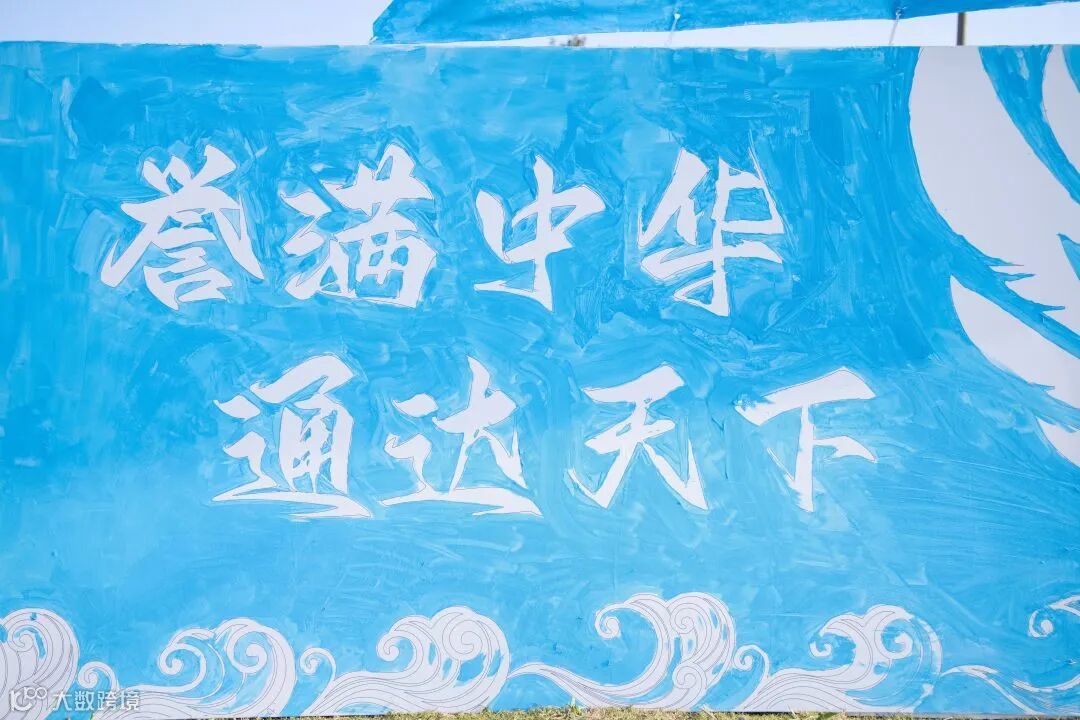 誉满中华
通达天下
大数跨境